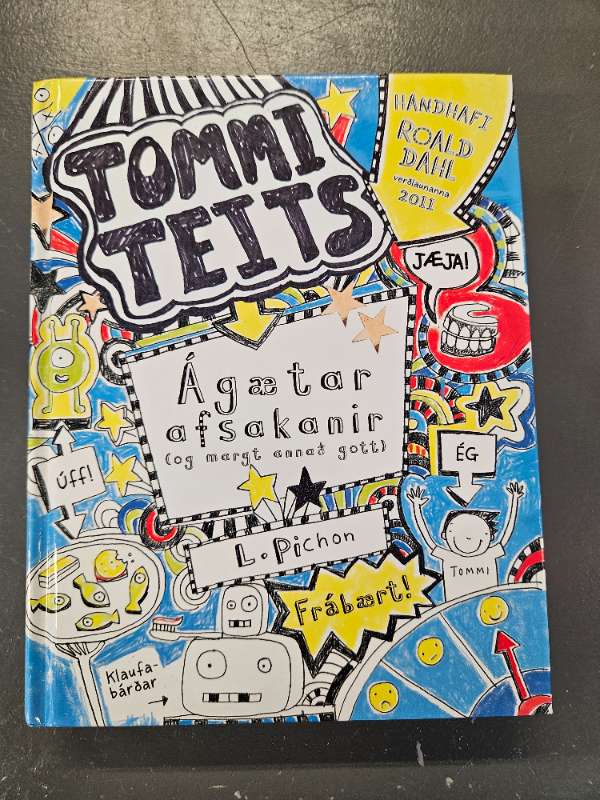 TOMMI
TEITS
HANDHAFI
ROALD
DAHL
verðlaunanna
2011
JÆJA!
Ágætar
afsakanir
(og margt annað gott)
ÚFF!
ÉG
L. Pichon
TOMMI
Frábært!
Klaufa-
bárðar